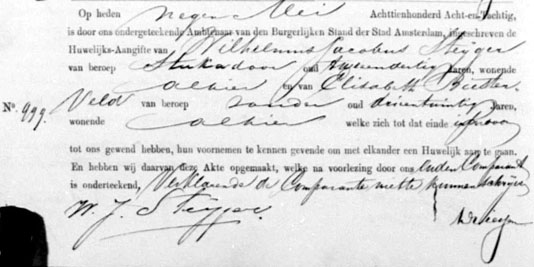 Op heden negen Mei Achttienhonderd Acht-en-Tachtig,
is door ons ondergeteekende Ambtenaar van den Burgerlijken Stand der Stad Amsterdam, ingeschreven de
Huwelijks-Aangifte van Wilhelmus Jacobus Steyger
van beroep Stukadoor oud tweeendertig Jaren, wonende
alhier en van Elisabeth Beester-
Nº. 999. Veld van beroep zonder oud drieentwintig Jaren,
wonende alhier welke zich tot dat einde in persoon
tot ons gewend hebben, hun voornemen te kennen gevende om met elkander een Huwelijk aan te gaan.
En hebben wij daarvan deze Akte opgemaakt, welke na voorlezing door ons en den Comparant
is onderteekend, Verklarende de Comparante niet te kunnen schrijven
W. J. Steyger.